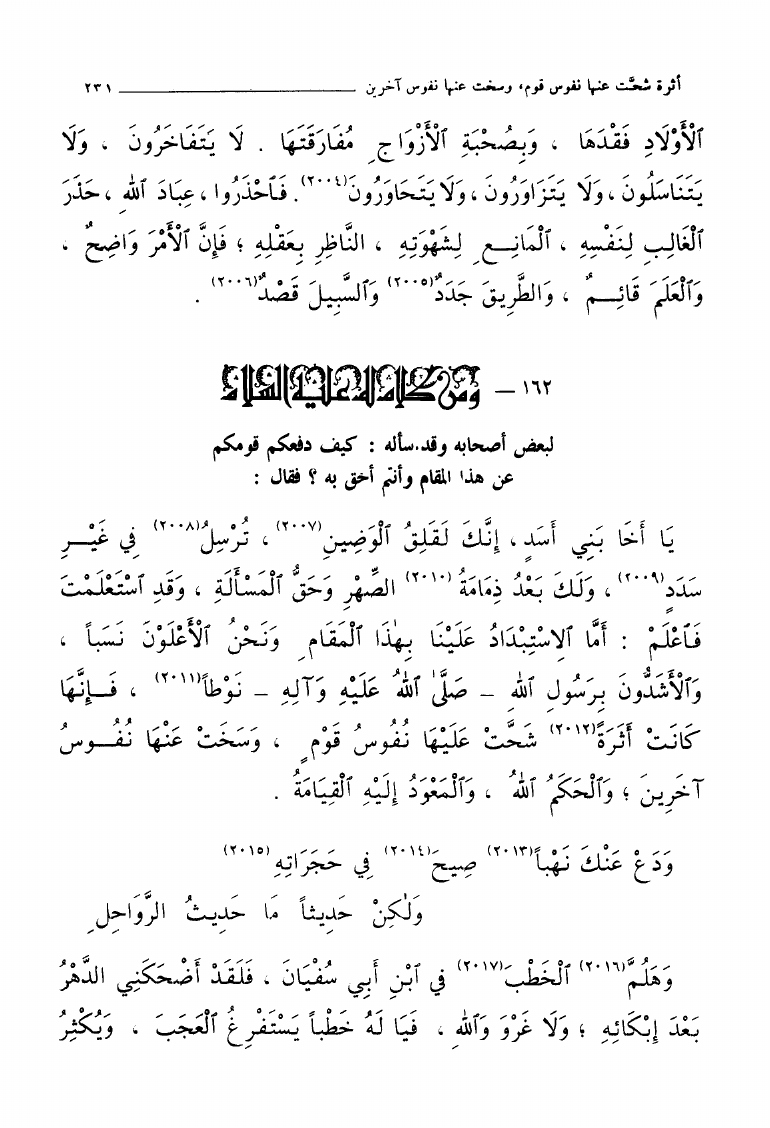 أثرة شحَّت عنها نفوس قوم، وسخت عنها نفوس آخرين ــــــــــــ ٢٣١
ٱلْأَوْلَادِ فَقْدَهَا ، وَبِصُحْبَةِ ٱلْأَزْوَاجِ مُفَارَقَتَهَا . لَا يَتَفَاخَرُونَ ، وَلَا
يَتَنَاسَلُونَ ، وَلَا يَتَزَاوَرُونَ ، وَلَا يَتَحَاوَرُونَ(٢٠٠٤). فَٱحْذَرُوا ، عِبَادَ ٱللهِ ، حَذَرَ
ٱلْغَالِبِ لِنَفْسِهِ ، ٱلْمَانِعِ لِشَهْوَتِهِ ، النَّاظِرِ بِعَقْلِهِ ؛ فَإِنَّ ٱلْأَمْرَ وَاضِحٌ ،
وَٱلْعَلَمَ قَائِمٌ ، وَالطَّرِيقَ جَدَدٌ(٢٠٠٥) وَٱلسَّبِيلَ قَصْدٌ(٢٠٠٦) .
١٦٢ – ومن كلام له عليه السلام
لبعض أصحابه وقد سأله : كيف دفعكم قومكم
عن هذا المقام وأنتم أحق به ؟ فقال :
يَا أَخَا بَنِي أَسَدٍ ، إِنَّكَ لَقَلِقُ ٱلْوَضِينِ(٢٠٠٧) ، تُرْسِلُ(٢٠٠٨) فِي غَيْرِ
سَدَدٍ(٢٠٠٩) ، وَلَكَ بَعْدُ ذِمَامَةُ(٢٠١٠) الصِّهْرِ وَحَقُّ ٱلْمَسْأَلَةِ ، وَقَدِ ٱسْتَعْلَمْتَ
فَٱعْلَمْ : أَمَّا ٱلِاسْتِبْدَادُ عَلَيْنَا بِهٰذَا ٱلْمَقَامِ وَنَحْنُ ٱلْأَعْلَوْنَ نَسَباً ،
وَٱلْأَشَدُّونَ بِرَسُولِ ٱللهِ – صَلَّى ٱللهُ عَلَيْهِ وَآلِهِ – نَوْطاً(٢٠١١) ، فَإِنَّهَا
كَانَتْ أَثَرَةً(٢٠١٢) شَحَّتْ عَلَيْهَا نُفُوسُ قَوْمٍ ، وَسَخَتْ عَنْهَا نُفُوسُ
آخَرِينَ ؛ وَٱلْحَكَمُ ٱللهُ ، وَٱلْمَعْوَدُ إِلَيْهِ ٱلْقِيَامَةُ .
وَدَعْ عَنْكَ نَهْباً(٢٠١٣) صِيحَ(٢٠١٤) فِي حَجَرَاتِهِ(٢٠١٥)
وَلٰكِنْ حَدِيثاً مَا حَدِيثُ الرَّوَاحِلِ
وَهَلُمَّ(٢٠١٦) ٱلْخَطْبَ(٢٠١٧) فِي ٱبْنِ أَبِي سُفْيَانَ ، فَلَقَدْ أَضْحَكَنِي الدَّهْرُ
بَعْدَ إِبْكَائِهِ ؛ وَلَا غَرْوَ وَٱللهِ ، فَيَا لَهُ خَطْباً يَسْتَفْرِغُ ٱلْعَجَبَ ، وَيُكْثِرُ